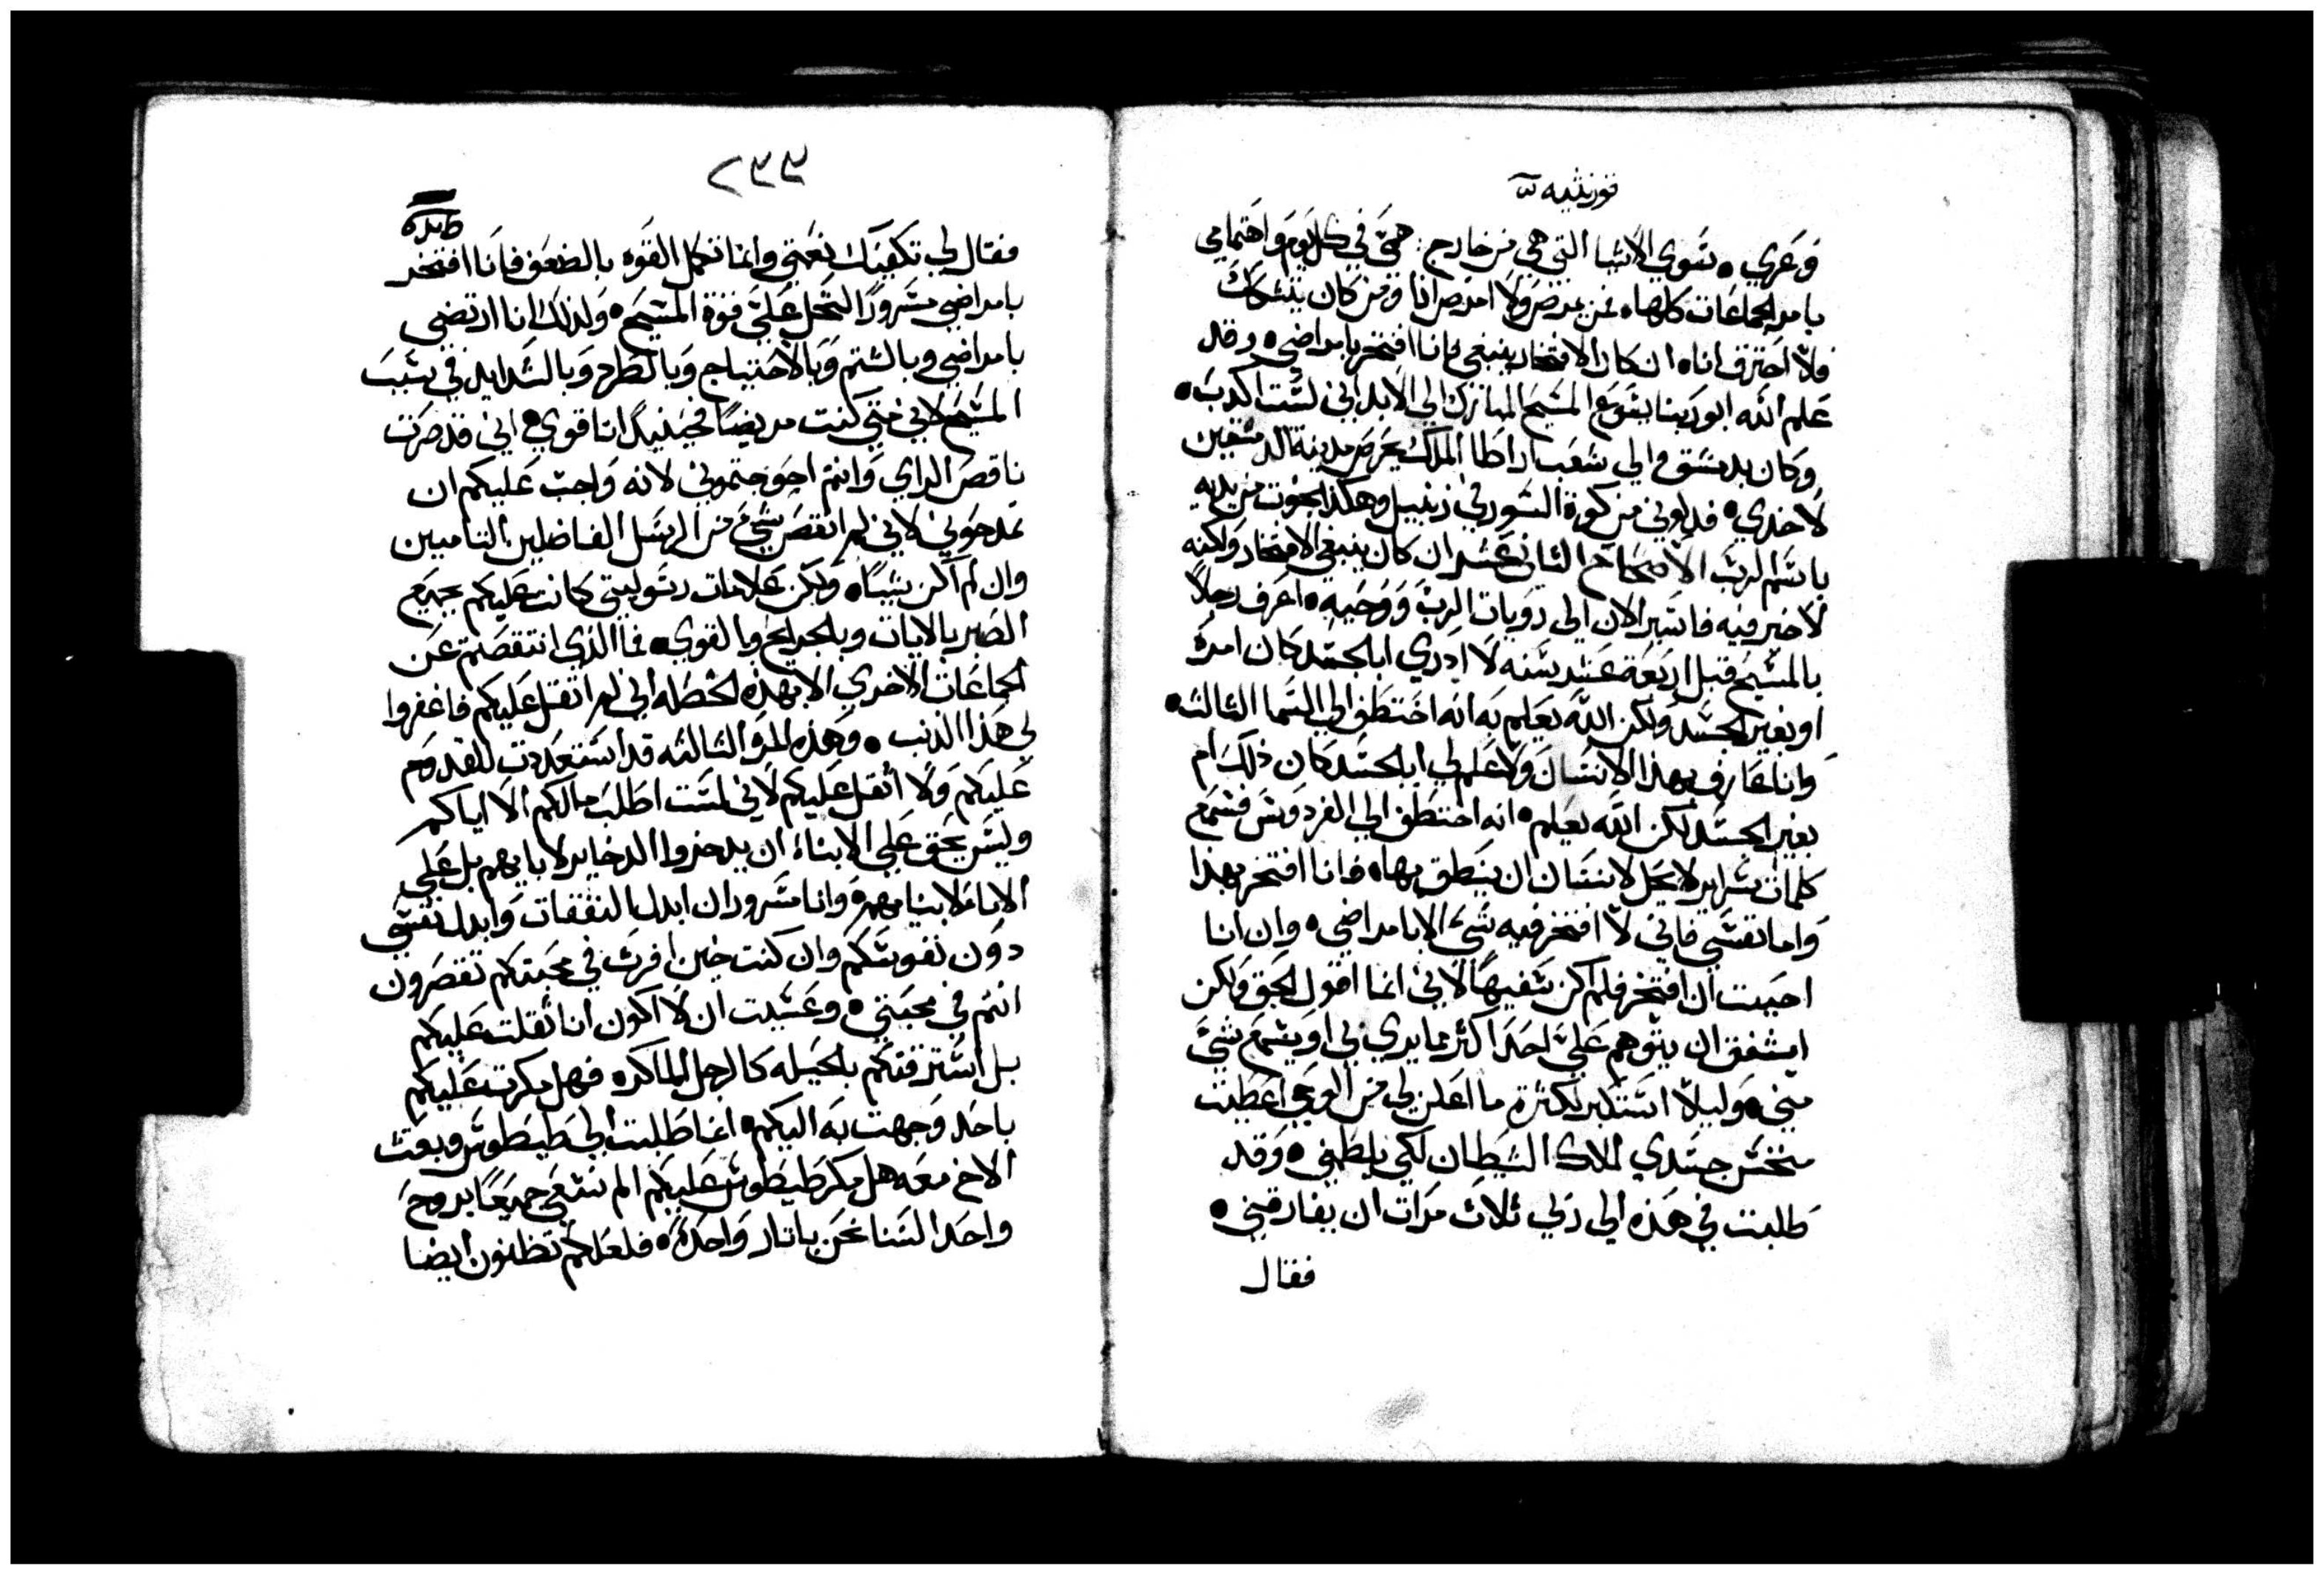 قورنثيه
وعري ٥ سوي الاشيا التي هي من خارج ٠ همتي في كل يوم واهتمامي
بامر الجماعات كلها ٥ فمن يمرض ولا امرض انا ومن كان يتشكك
فلا احترق انا ٥ ان كان الافتخار ينبغي فانا افتخر بامراضي ٥ وقد
علم الله ابو ربنا يسوع المسيح المبارك الي الابد اني لست اكدب ٥
وكان بدمشق والي شعب اراطا الملك يحرص مدينة الدمشقين
لاخدي ٥ فدلوني من كوة السور في زنبيل وهكذا نجوت من يديه
باسم الرب الاصحاح الثاني عشر ان كان ينبغي الافتخار ولكنه
لا خير فيه فاسير الان الي رويات الرب ووحيه ٥ اعرف رجلاً
بالمسيح قبل اربعة عشر سنه لا ادري ابالجسد كان امره
او بغير الجسد ولكن الله يعلم به انه اختطف الي السما الثالثه ٥
وانا عارف بهذا الانسان ولا علم لي ابالجسد كان ذلك ام
بغير الجسد لكن الله يعلم ٥ انه اختطف الي الفردوس فسمع
كلمات سراير لا يحل لانسان ان ينطق بها ٥ فانا افتخر بهذا
واما نفسي فاني لا افتخر فيه شي الا بامراضي ٥ وان انا
احببت ان افتخر فلم اكن سفيهاً لاني انما اقول الحق ولكن
اشفق ان يتوهم علي احد اكثر مما يري في او يسمع شي
مني ٥ وليلا استكبر لكثرة ما اعلن لي من الوحي اعطيت
منخس جسدي ملاك الشيطان لكي يلطمني ٥ وقد
طلبت في هذه الي ربي ثلاث مرات ان يفارقني ٥
فقال
فقال لي تكفيك نعمتي وانما تكمل القوه بالضعف فانا افتخر
بامراضي مسرورًا لتحل علي قوة المسيح ٥ ولذلك انا ارتضي
بامراضي وبالشتم وبالاحتياج وبالطرد وبالشدايد في سبب
المسيح لاني متي كنت مريضًا فحينيد انا قوي ٥ اني قد صرت
ناقص الراي وانتم احوجتموني لانه واجب عليكم ان
تمدحوني لاني لم انقص شي من الرسل الفاضلين التاميين
وان لم اكن شياً ٥ ولكن علامات رسوليتي كانت عليكم بجميع
الصبر بالايات وبالجرايح وبالقوي ٥ فما الذي انتقصتم عن
الجماعات الاخري الا بهذه الخطه اني لم اتقل عليكم فاغفروا
لي هذا الذنب ٥ وهذه المره الثالثه قد استعددت للقدوم
عليكم ولا أتقل عليكم لاني لست اطلب مالكم الا اياكم
وليس يحق علي الابناء ان يدخروا الدخاير لابايهم بل علي
الابا لابنايهم ٥ وانا مسرور ان ابدل النفقات وابدل نفسي
دون نفوسكم وان كنت حين افرث في محبتكم تقصرون
انتم في محبتي ٥ وعسيت ان لا اكون انا تقلت عليكم
بل استرقتكم بالحيله كالرجل الماكره فهل مكرت عليكم
باحد وجهت به اليكم ٥ انما طلبت الي طيطوس وبعت
الاخ معه هل مكر طيطوس عليكم الم نسعي جميعًا بروح
واحد السنا نحن باتار واحده ٥ فلعلكم تظنون ايضا